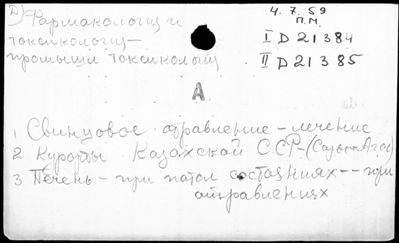 Дф
Фармакологи и
токсикологи—
промышл токсиколог
4.7.59
П.М.
I D 21384
II D 21385
А
1 Свинцовое отравление – лечение
2 Курорты Казахской ССР –
3 Печень – при патол состояниях –– при
отравлениях